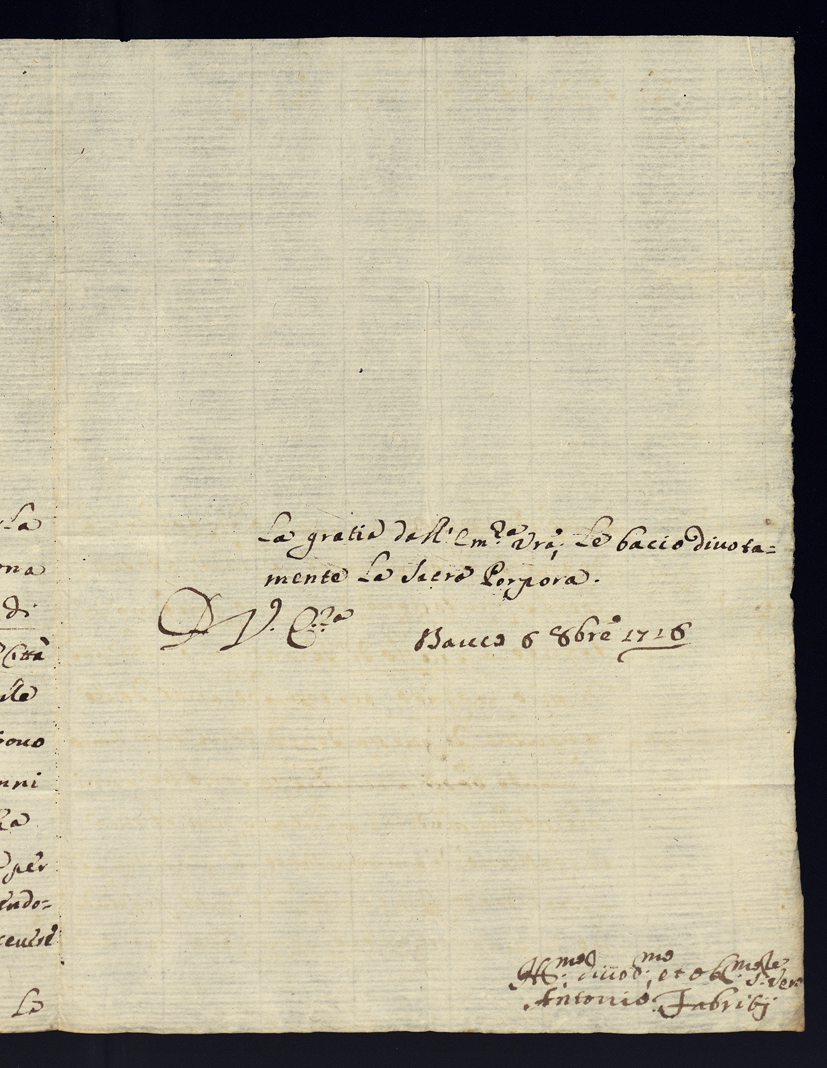 la
ona
di
Città
lle
rono
nni
la
per
endo=
cevere
La
La gratia dell' Em.za Vra, Le bacio divota=
mente La Sacra Porpora.
D V. E.za
Bauco 6 8bre 1718
H.mo divot.mo, et obl.mo Se.re
Antonio Fabritij